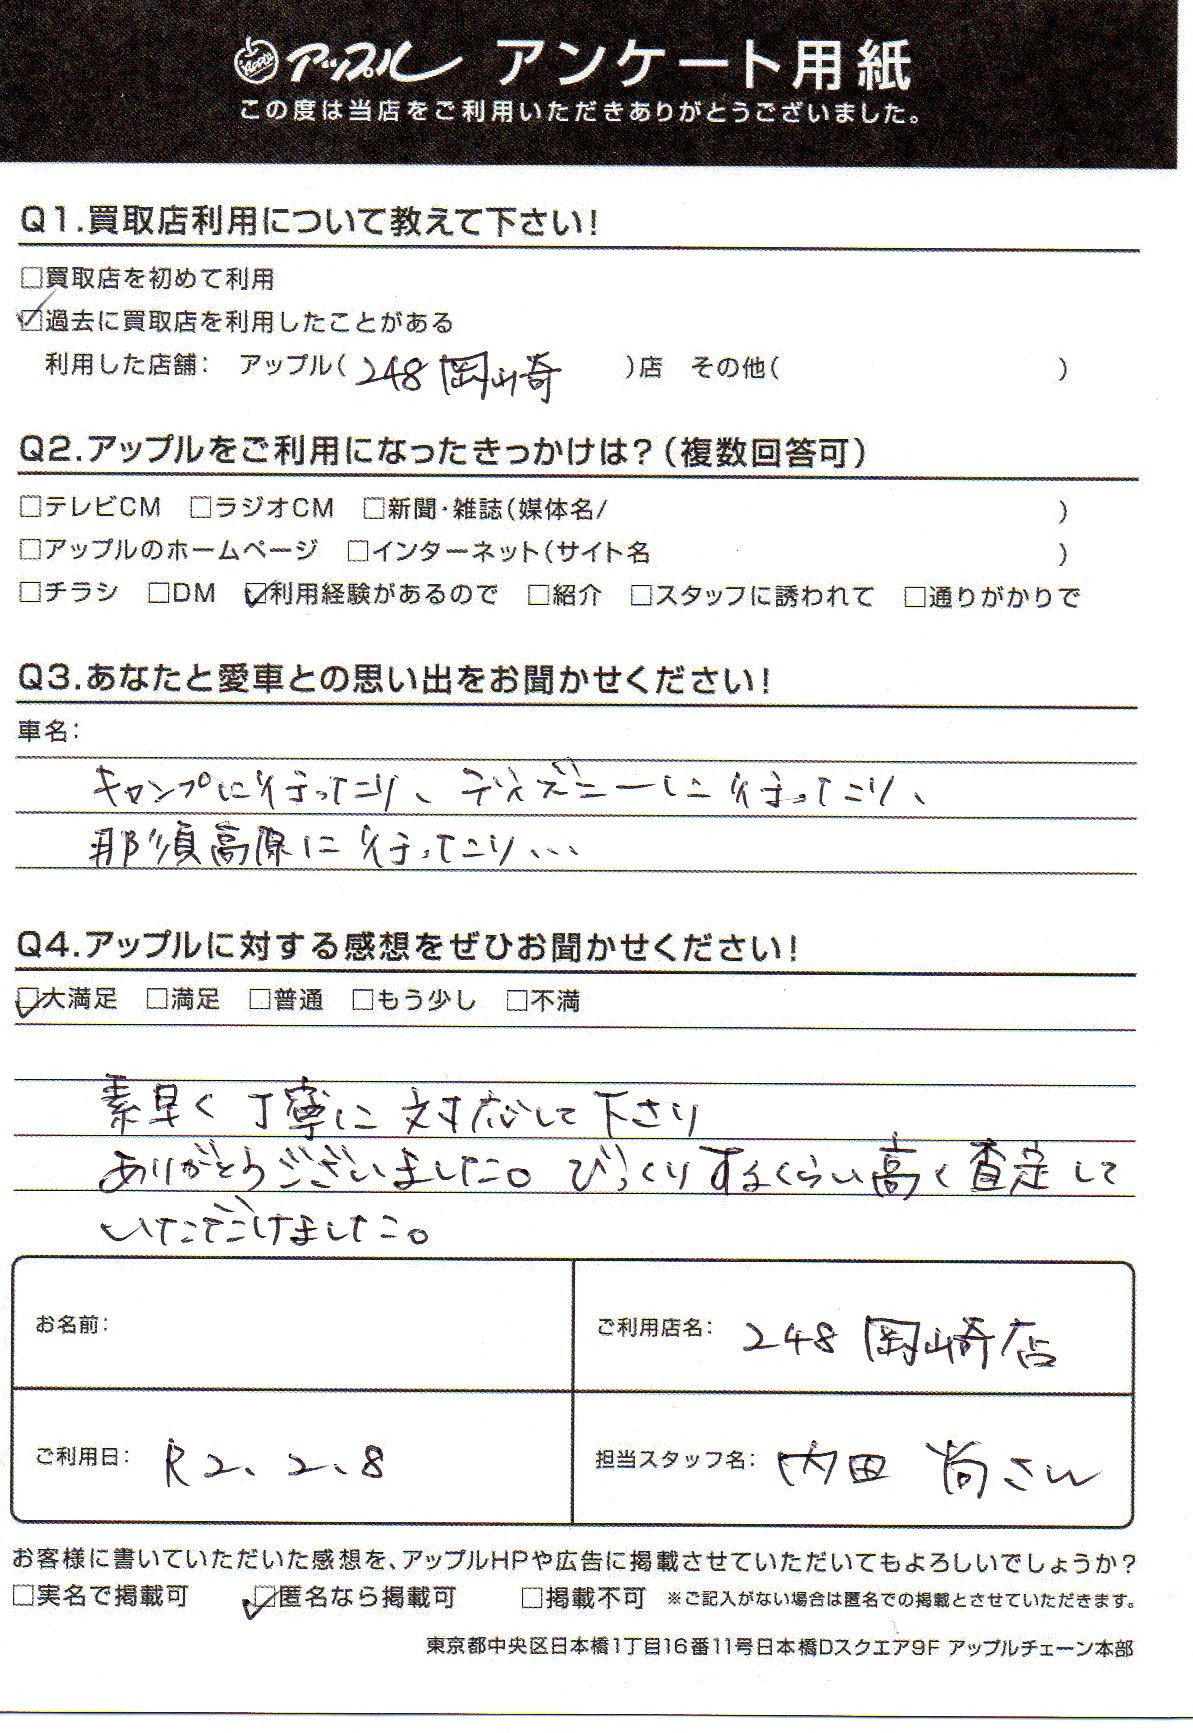 Apple アップル アンケート用紙
この度は当店をご利用いただきありがとうございました。
Q1.買取店利用について教えて下さい!
□買取店を初めて利用
☑過去に買取店を利用したことがある
利用した店舗: アップル( 248岡崎 )店 その他( )
Q2.アップルをご利用になったきっかけは?(複数回答可)
□テレビCM □ラジオCM □新聞・雑誌(媒体名/ )
□アップルのホームページ □インターネット(サイト名 )
□チラシ □DM ☑利用経験があるので □紹介 □スタッフに誘われて □通りがかりで
Q3.あなたと愛車との思い出をお聞かせください!
車名:
キャンプに行ったり、ディズニーに行ったり、
那須高原に行ったり...
Q4.アップルに対する感想をぜひお聞かせください!
☑大満足 □満足 □普通 □もう少し □不満
素早く丁寧に対応して下さり
ありがとうございました。びっくりするくらい高く査定して
いただけました。
お名前:
ご利用店名: 248岡崎店
ご利用日: R2、2、8
担当スタッフ名: 内田 尚さん
お客様に書いていただいた感想を、アップルHPや広告に掲載させていただいてもよろしいでしょうか?
□実名で掲載可 ☑匿名なら掲載可 □掲載不可 ※ご記入がない場合は匿名での掲載とさせていただきます。
東京都中央区日本橋1丁目16番11号日本橋Dスクエア9F アップルチェーン本部